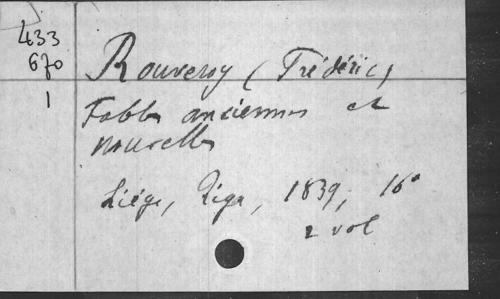 433
670
1
Rouveroy (Frédéric)
Fables anciennes et
nouvelles
Liége, Riga, 1839, 16°
2 vol